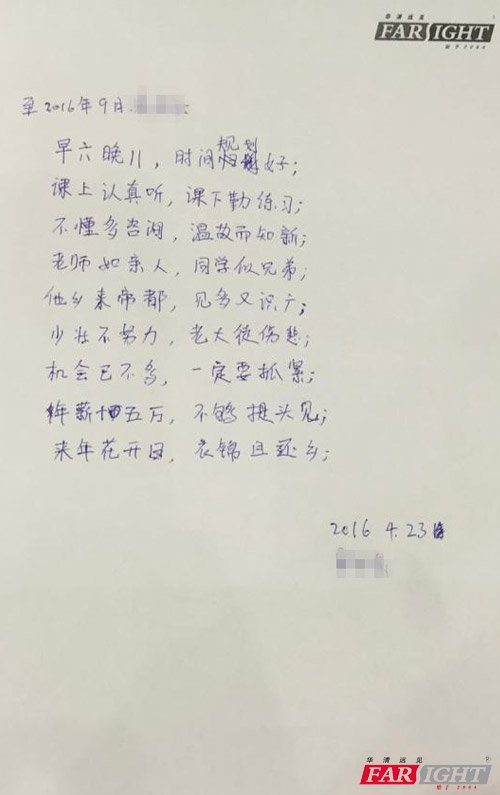 华清远见
FARSIGHT
始于2004
至2016年9月
早六晚11，时间规划好；
课上认真听，课下勤练习；
不懂多咨询，温故而知新；
老师如亲人，同学似兄弟；
他乡来帝都，见多又识广；
少壮不努力，老大徒伤悲；
机会已不多，一定要抓紧；
年薪十五万，不够提头见；
来年花开日，衣锦且还乡；
2016 4.23
华清远见
FARSIGHT
始于2004